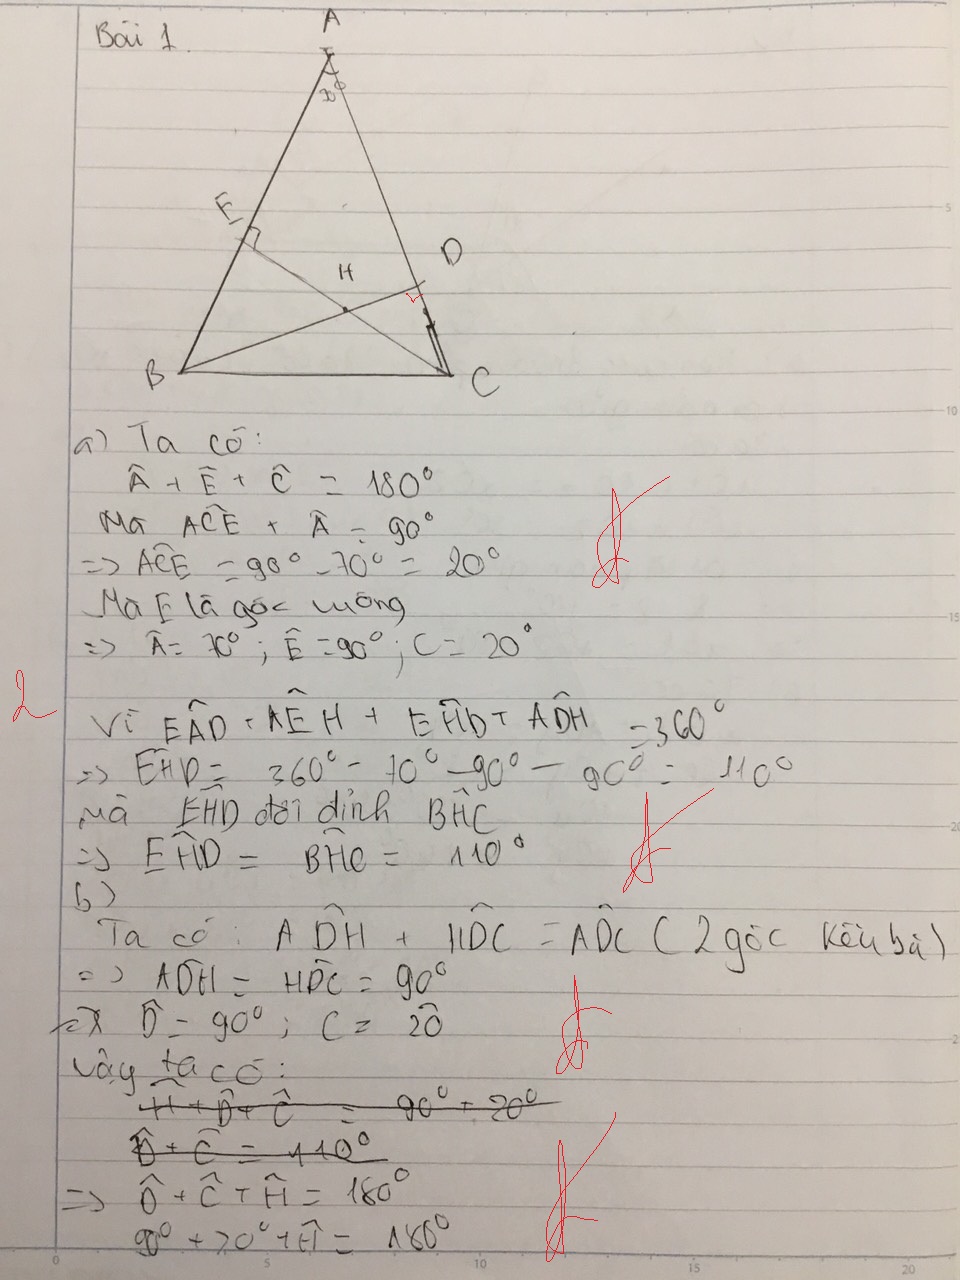 Bài 1.
A
E
D
H
B
C
a) Ta có:
Â + Ê + Ĉ = 180°
Mà AĈE + Â = 90°
=> AĈE = 90° - 70° = 20°
Mà E là góc vuông
=> Â = 70° ; Ê = 90° ; C = 20°
2
Vì EÂD + AÊH + EĤD + AD̂H = 360°
=> EĤD = 360° - 70° - 90° - 90° = 110°
Mà EĤD đối đỉnh BĤC
=> EĤD = BĤC = 110°
b)
Ta có: AD̂H + HD̂C = AD̂C (2 góc kề bù)
=> AD̂H = HD̂C = 90°
=> D̂ = 90° ; C = 20
Vậy ta có:
Ĥ + D̂ + Ĉ = 90° + 20°
D̂ + Ĉ = 110°
=> D̂ + Ĉ + Ĥ = 180°
90° + 20° + Ĥ = 180°
0 5 10 15 20
5
10
15
20